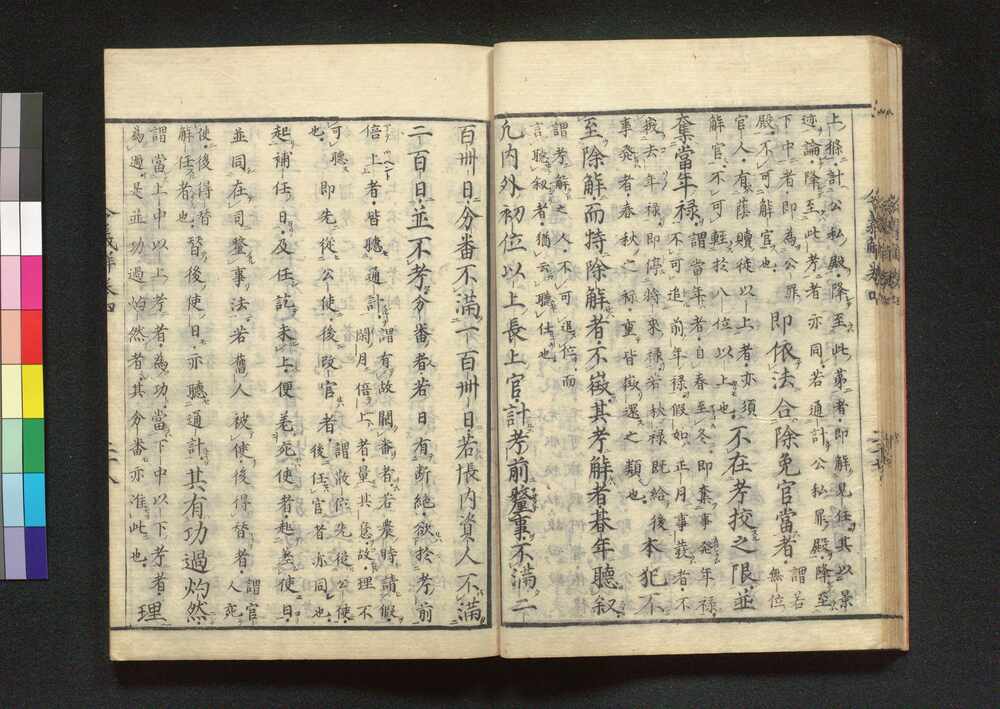 上。據計公私殿降至此第者。即解見任。其以景
迹論降至此考者亦同。若通計公私罪殿降至
下中者。即為公罪
殿。不可解官也。即依法合除免官當者。謂若無位
官人。有蔭贖徒以上者。亦須
解官。不可輕於八位以上也。不在考校之限。並
奪當年祿。謂當年者。自春至冬。即奪事發年祿。
不可追前年祿。假如正月事發者。不
徵去年祿。即停將來祿。若秋祿既給。後
事發者。春秋之祿。重皆徵還之類也。本犯不
至除解而特除解者不徵其考解者朞年聽敘
謂考解之人。不可追位。而
言聽敘者。猶云聽仕也。
凡內外初位以上長上官計考前釐事不滿二
百卌日分番不滿一百卌日若帳內資人不滿
二百日並不考。分番者。若日有斷絕。欲於考前
倍上者。皆聽通計。謂有故闕番者。若農時請假。
閑月倍上者。量其意故。理不
可聽
也。即先從公使後改官者。謂散位先從公使。
後任官者亦同也。
起補任日。及任訖未上。便差充使者。起差使日。
並同在司釐事法。若舊人被使。後得替者。謂官
人充
使。後得替
解任者也。替後使日。亦聽通計。其有功過灼然
謂當上中以上考者為功。當下中以下考者
為過。是並功過灼然者。其分番亦准此也。理